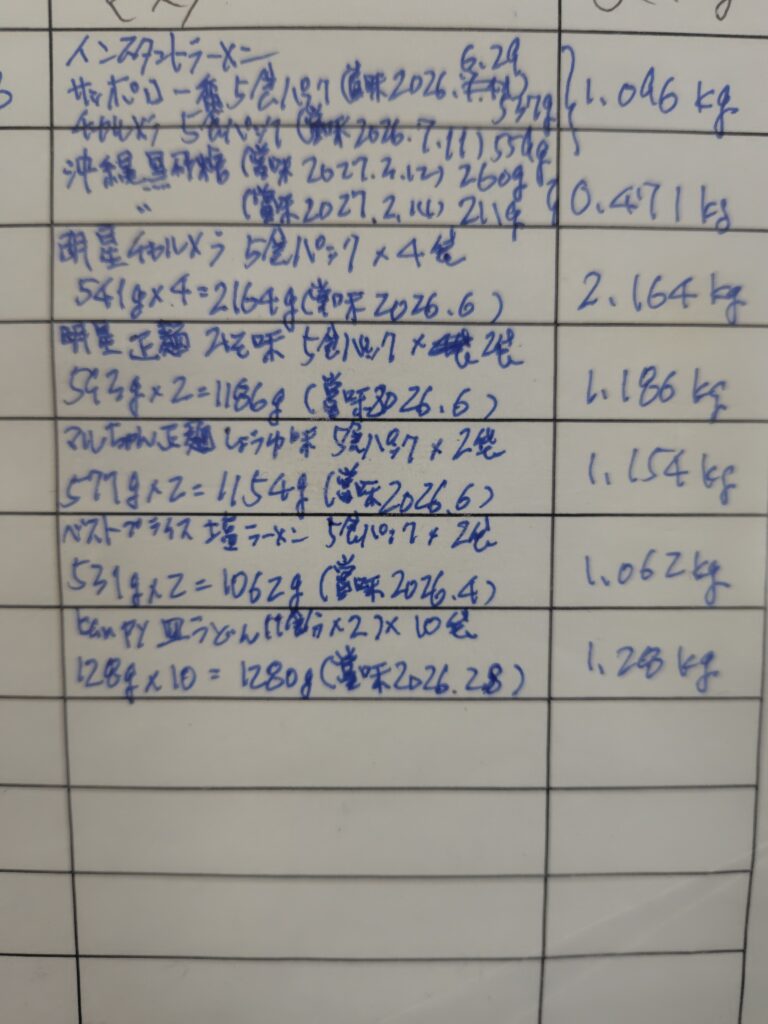 インスタントラーメン
6.29
サッポロ一番 5食パック (賞味2026. 537g
チャルメラ 5食パック (賞味2026.7.11) 559g
1.096 kg
沖縄黒砂糖 (賞味2027.2.12) 260g
〃 (賞味2027.2.14) 211g
0.471 kg
明星チャルメラ 5食パック×4袋
541g×4=2164g(賞味2026.6)
2.164 kg
明星 正麺 みそ味 5食パック× 2袋
593g×2=1186g (賞味2026.6)
1.186 kg
マルちゃん正麺 しょうゆ味 5食パック×2袋
577g×2=1154g(賞味2026.6)
1.154 kg
ベストプライス 塩ラーメン 5食パック×2袋
531g×2=1062g (賞味2026.4)
1.062 kg
kanpy 皿うどん(1食分×2)×10袋
128g×10=1280g(賞味2026.2.8)
1.28 kg